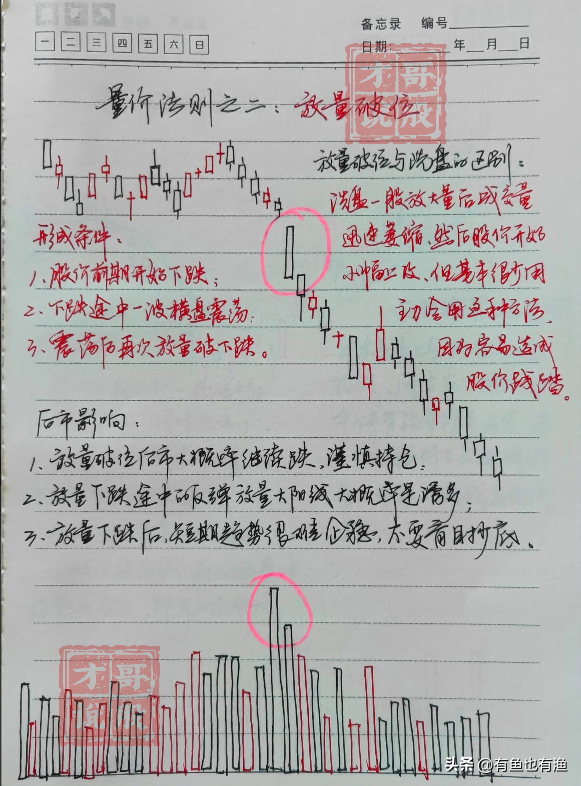 备忘录 编号
一 二 三 四 五 六 日
日期: 年 月 日
才哥说戒
量价法则之二：放量破位
放量破位与洗盘的区别：
洗盘一般放大量后成交量
迅速萎缩、然后股价开始
小幅上攻、但基本很少用
主力会用这种方法、
因为容易造成
股价践踏。
形成条件：
1、股价前期开始下跌；
2、下跌途中一波横盘震荡；
3、震荡后再次放量破下跌。
后市影响：
1、放量破位后市大概率继续跌，谨慎持仓；
2、放量下跌途中的反弹放量大阳线大概率是诱多；
3、放量下跌后，短期趋势很难企稳，不要盲目抄底。
才哥说戒
头条 @有鱼也有渔